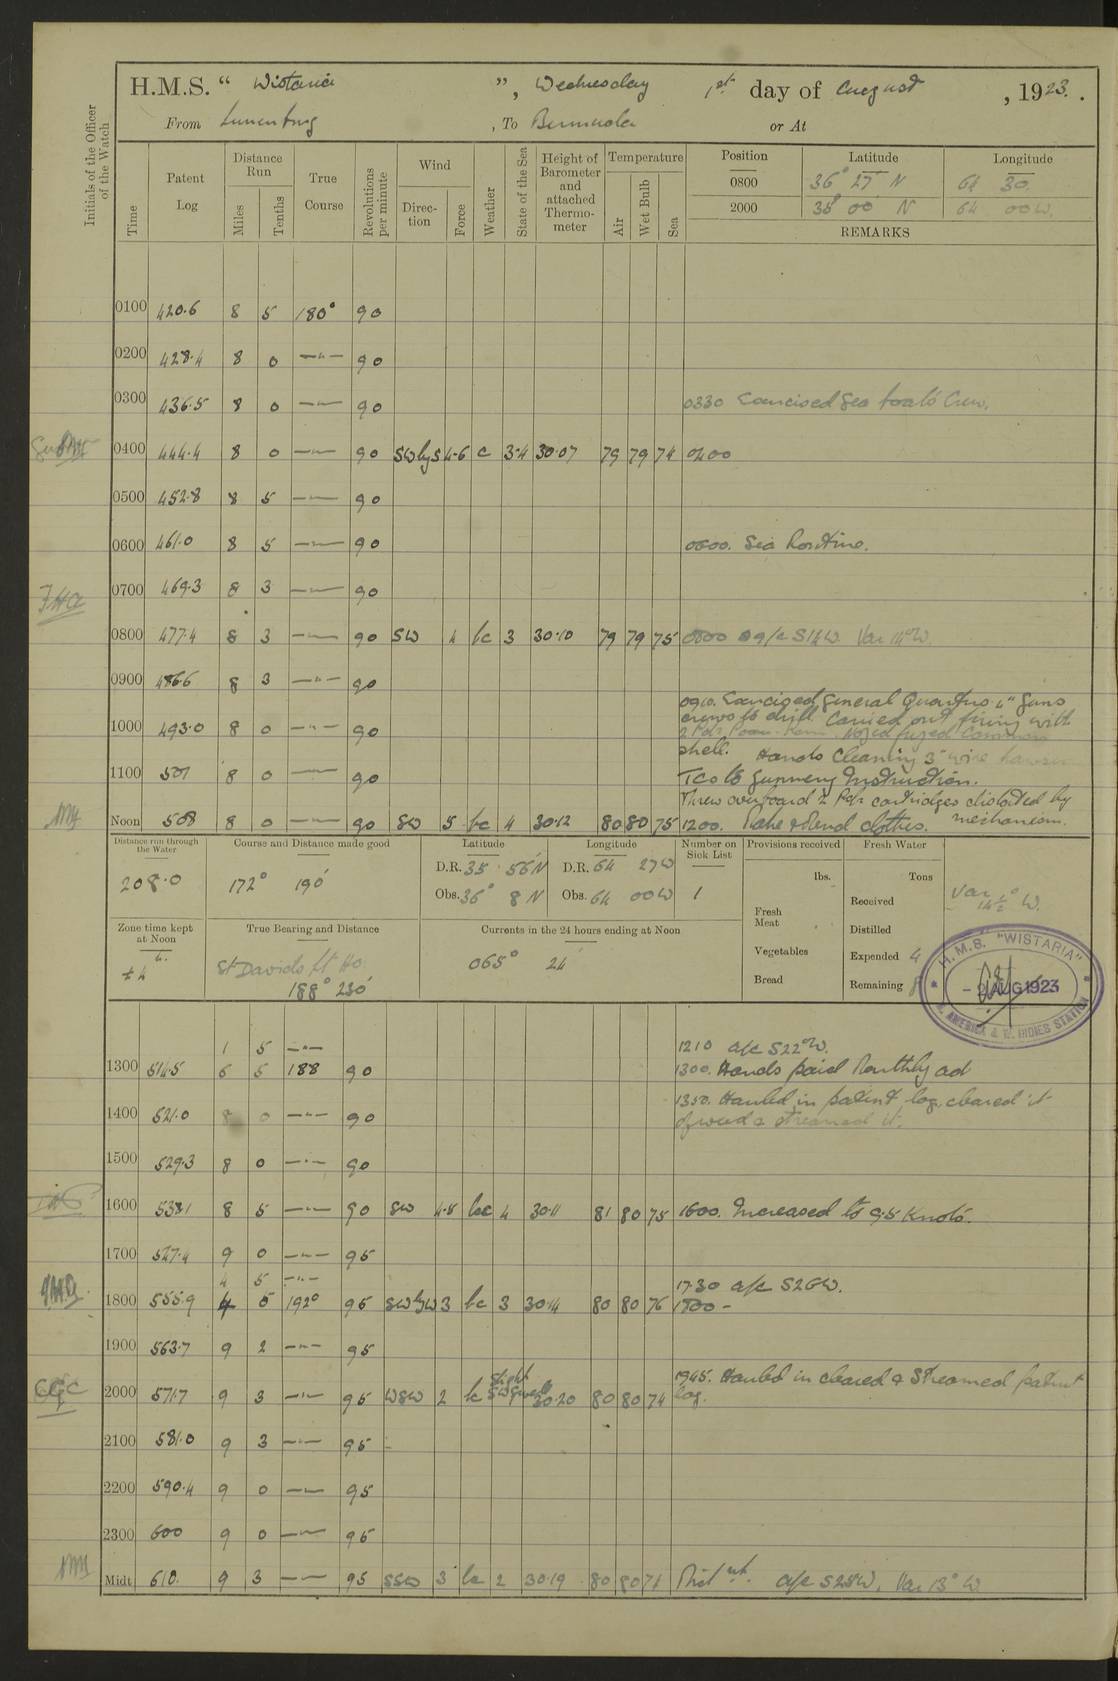 H.M.S. “ Wistaria ”, Wednesday 1st day of August, 1923.
From Lunenburg, To Bermuda or At
Initials of the Officer of the Watch
Time
Patent Log
Distance Run
Miles
Tenths
True Course
Revolutions per minute
Wind
Direction
Force
Weather
State of the Sea
Height of Barometer and attached Thermometer
Temperature
Air
Wet Bulb
Sea
Position Latitude Longitude
0800 36° 27' N 64 30.
2000 00 N 64 00 W.
REMARKS
0100 420.6 8 5 180° 90
0200 428.4 8 0 —"— 90
0300 436.5 8 0 —"— 90 0330 Exercised Sea boats Crew.
0400 444.4 8 0 —"— 90 SW by S 4-6 c 3-4 30.07 79 79 74 0400
0500 452.8 8 5 —"— 90
0600 461.0 8 5 —"— 90 0600. Sea Routine.
0700 469.3 8 3 —"— 90
0800 477.4 8 3 —"— 90 SW 4 bc 3 30.10 79 79 75 0800 a/c S14W Var 14°W.
0900 486.6 8 3 —"— 90
0910. Exercised General Quarters 4" Guns
crews to drill. Carried out firing with
1000 493.0 8 0 —"— 90
2 Pdr Pom-Pom. Nosed fuzed Common
shell. Hands Cleaning 3" wire hawser
1100 501 8 0 —"— 90 TCo to Gunnery Instruction.
Threw overboard 2 Pdr cartridges distorted by
mechanism.
Noon 508 8 0 —"— 90 SW 5 bc 4 30.12 80 80 75 1200. Make & Mend clothes.
Distance run through the Water
208.0
Course and Distance made good
172° 190'
Latitude
D.R. 35 56 N
Obs. 36° 8 N
Longitude
D.R. 64 27 W
Obs. 64 00 W
Number on Sick List
1
Provisions received
lbs.
Fresh Meat
Vegetables
Bread
Fresh Water
Tons
Received
Distilled
Expended 4
Remaining
Var 14½° W.
Zone time kept at Noon
+4
True Bearing and Distance
St Davids Lt Ho
188° 230'
Currents in the 24 hours ending at Noon
065° 24'
H.M.S. "WISTARIA"
AUG 1923
N. AMERICA & W. INDIES STATION
1 5 —"— 1210 a/c S22°W.
1300 514.5 6 5 188 90 1300. Hands paid Monthly ad
1350. Hauled in patent log, cleared it
1400 521.0 8 0 —"— 90 of weed & streamed it.
1500 529.3 8 0 —"— 90
1600 538.1 8 5 —"— 90 SW 4-5 bc 4 30.11 81 80 75 1600. Increased to 9.5 Knots.
1700 527.4 9 0 —"— 95
4 5 —"— 1730 a/c S26W.
1800 555.9 4 5 192° 95 SW by W 3 bc 3 30.14 80 80 76 1800 -
1900 563.7 9 2 —"— 95
1945. Hauled in cleared & Streamed patent
2000 571.7 9 3 —"— 95 WSW 2 bc slight SW Swell 30.20 80 80 74 log.
2100 581.0 9 3 —"— 95
2200 590.4 9 0 —"— 95
2300 600 9 0 —"— 95
Midt 610. 9 3 —"— 95 SSW 3 bc 2 30.19 80 80 Midnt. a/c S25W. Var 13° W
CGC